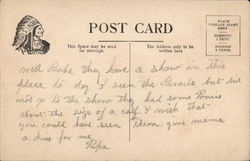 POST CARD
PLACE
POSTAGE STAMP
HERE
DOMESTIC
1 CENT
FOREIGN
2 CENTS
This Space may be used
for message.
The Address only to be
written here
Well Babe they have a show in this
place to day I seen the Parade but did
not go to the show they had some Ponies
about the size of a calf & wish that
you could have seen them. give mama
a kiss for me
Papa